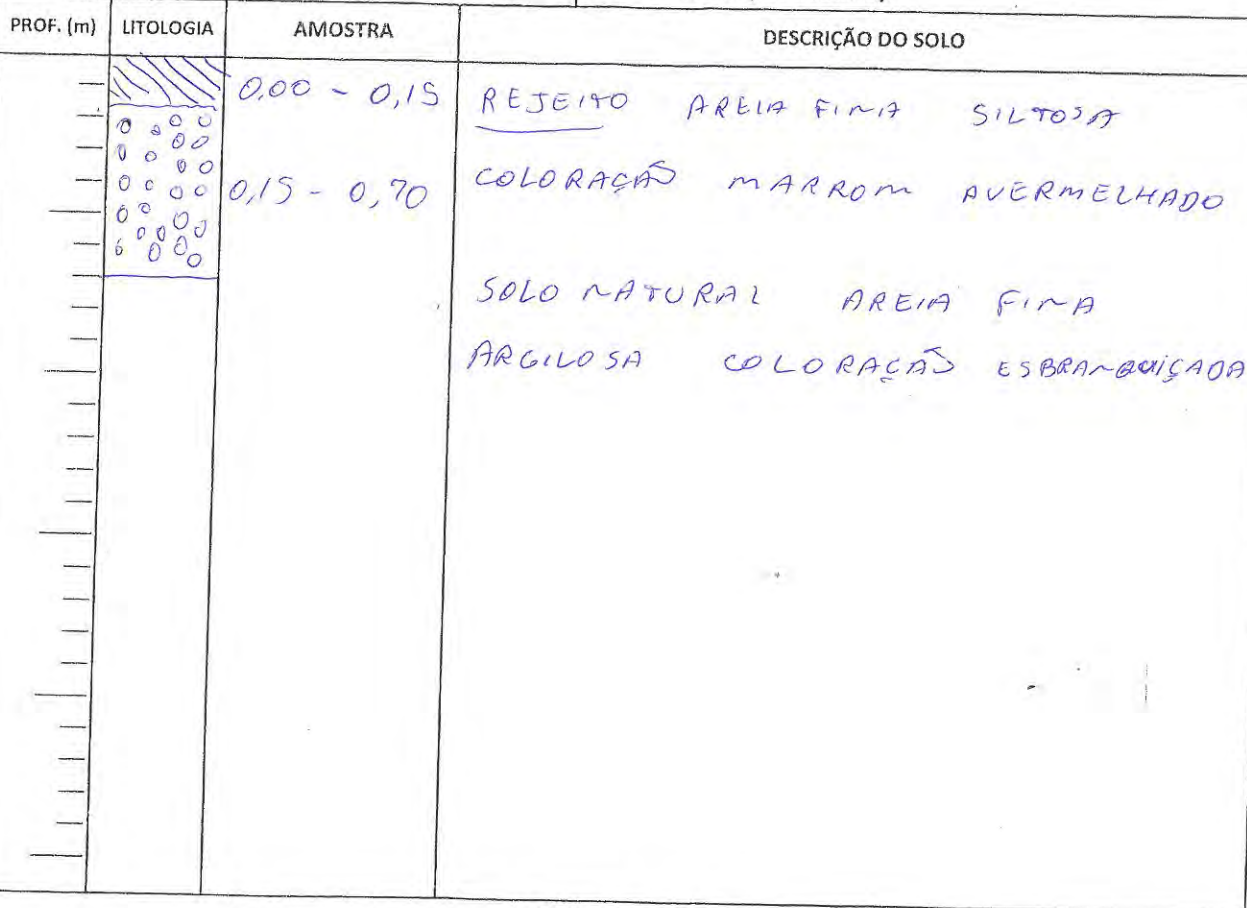 PROF. (m) LITOLOGIA AMOSTRA DESCRIÇÃO DO SOLO
0,00 - 0,15 REJEITO AREIA FINA SILTOSA
0,15 - 0,70 COLORAÇÃO MARROM AVERMELHADO
SOLO NATURAL AREIA FINA
ARGILOSA COLORAÇÃO ESBRANQUIÇADA